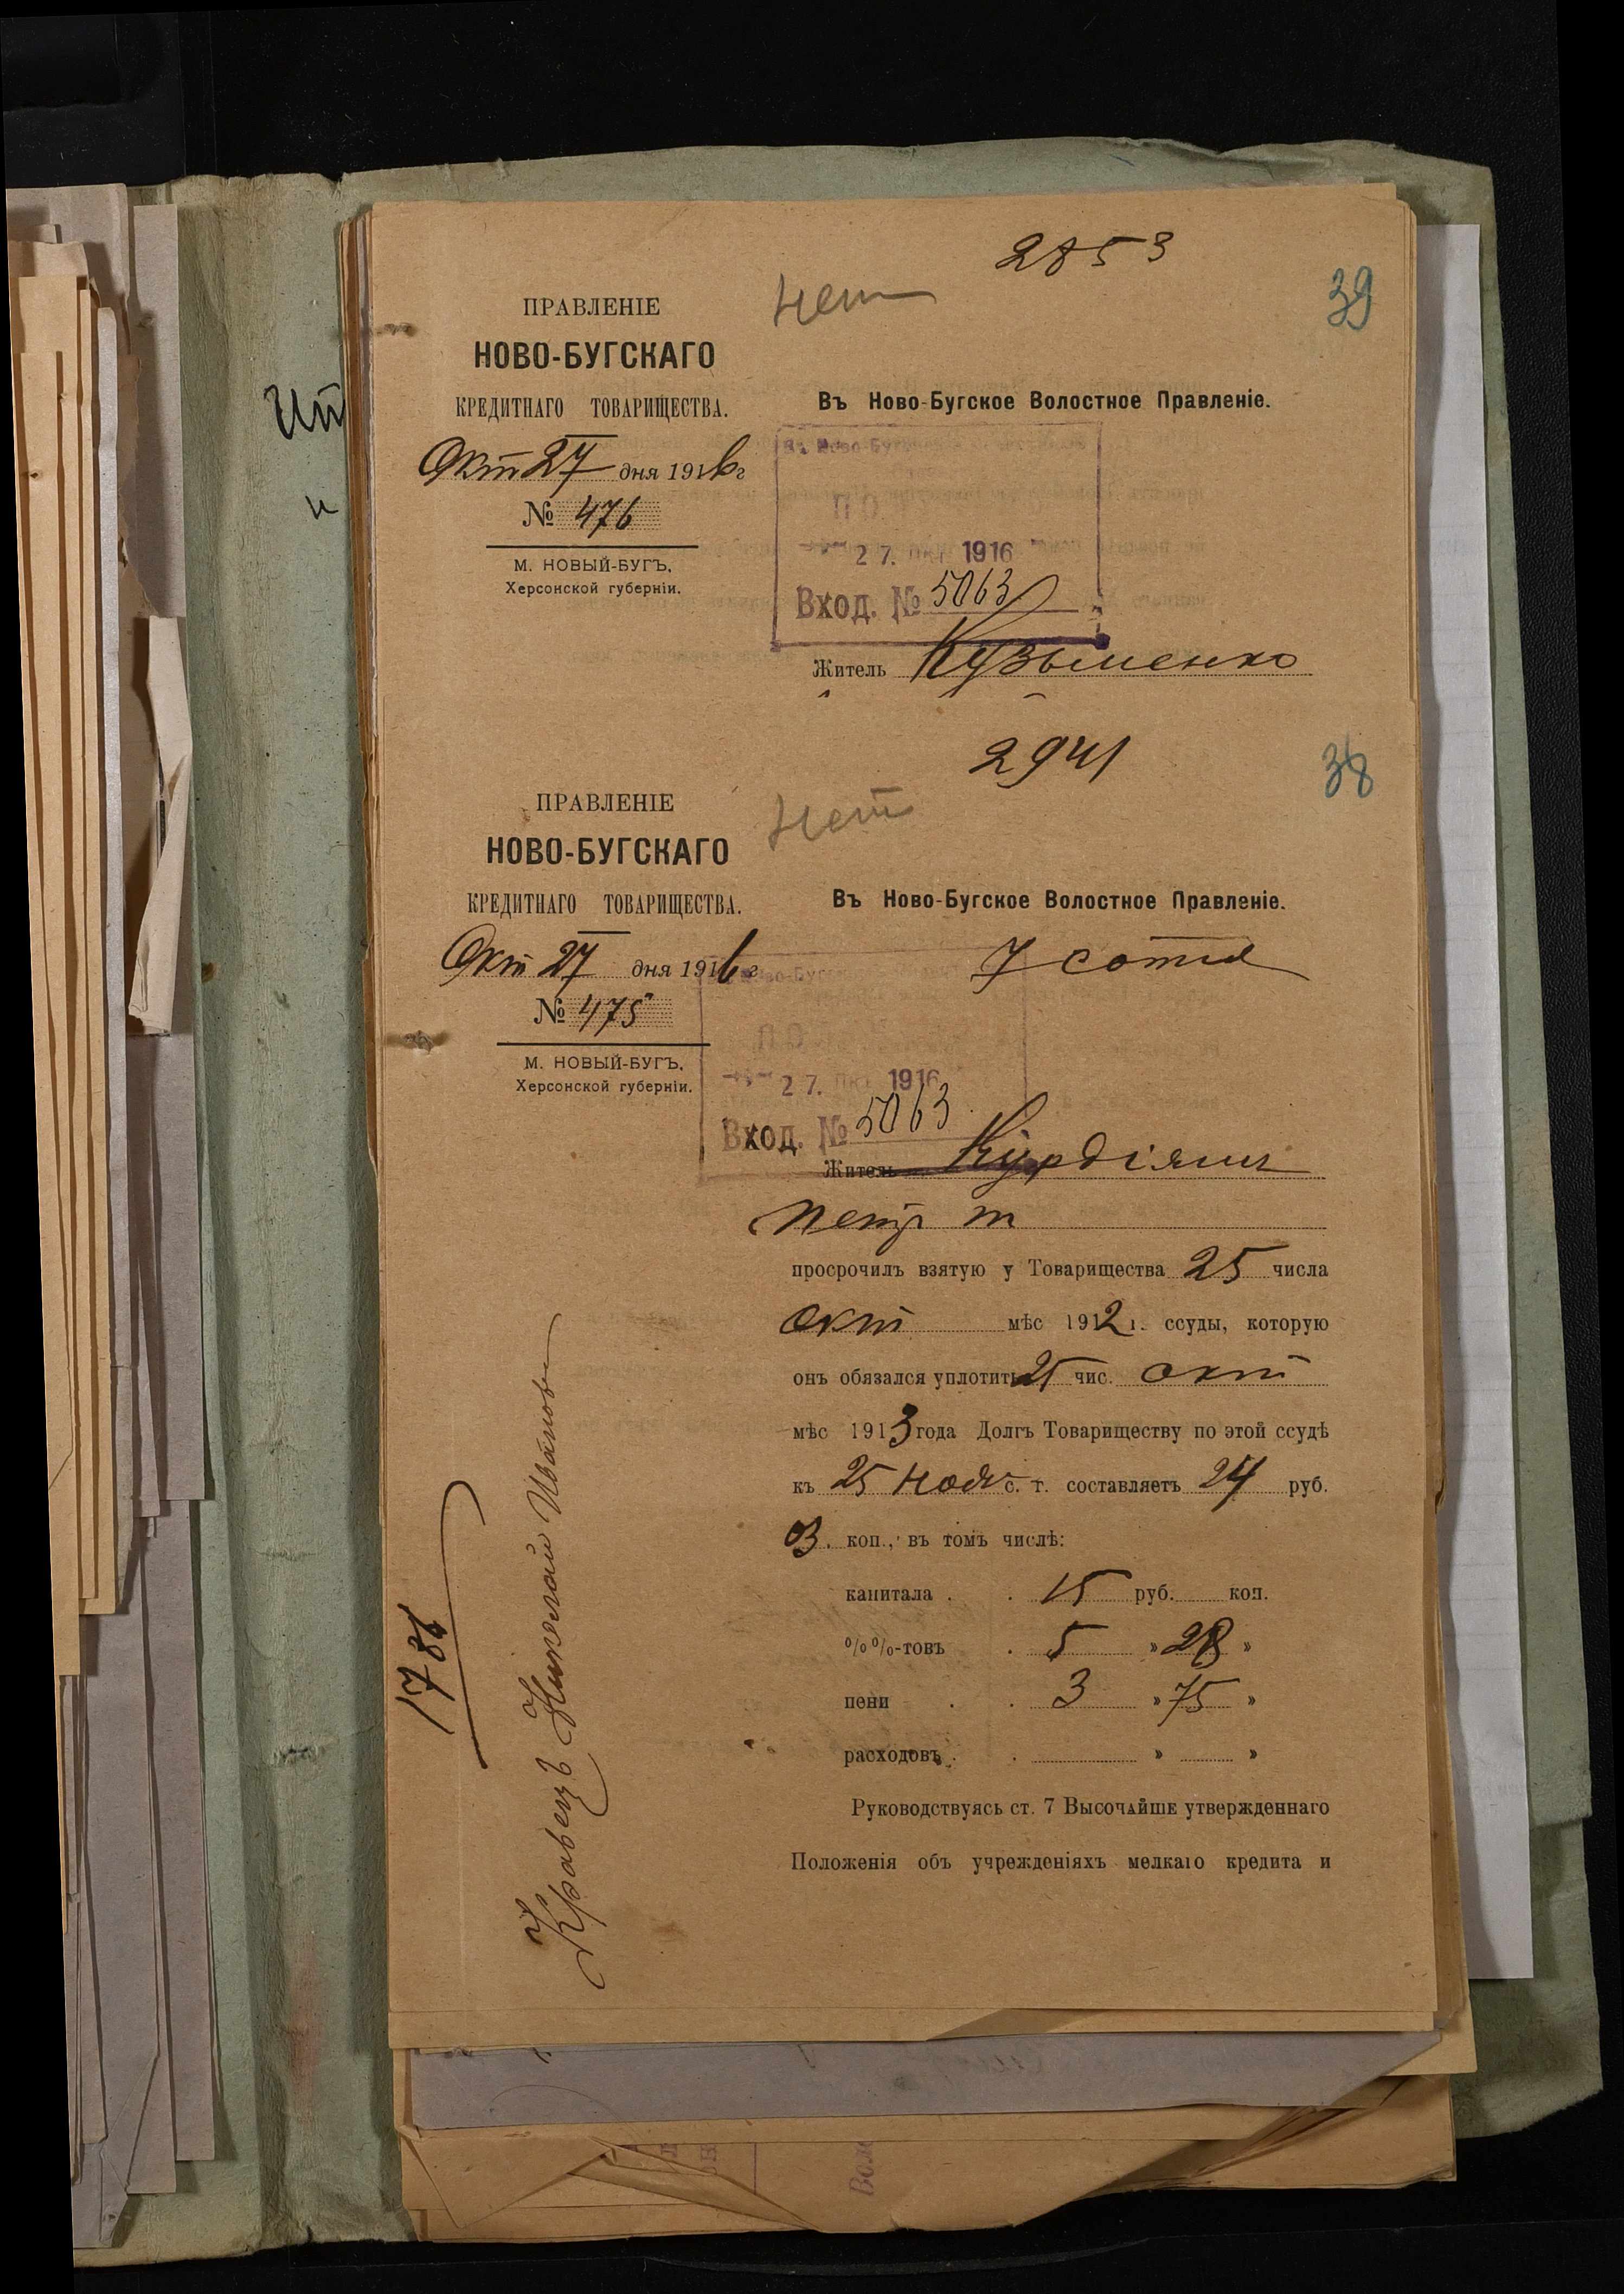 2853
39
Нет
ПРАВЛЕНІЕ
НОВО-БУГСКАГО
КРЕДИТНАГО ТОВАРИЩЕСТВА.
Въ Ново-Бугское Волостное Правленіе.
Окт 27 дня 1916 г
№ 476
М. НОВЫЙ-БУГЪ,
Херсонской губерніи.
Въ Ново-Буг
ПО
27. ОКТ 1916
Вход. № 5063
Житель Кузьменко
2941
38
Нет
ПРАВЛЕНІЕ
НОВО-БУГСКАГО
КРЕДИТНАГО ТОВАРИЩЕСТВА.
Въ Ново-Бугское Волостное Правленіе.
Окт 27 дня 1916 г
7 сотня
№ 475
М. НОВЫЙ-БУГЪ,
Херсонской губерніи.
ПО
27. ОКТ 1916
Вход. № 5063
Житель
Петр
просрочилъ взятую у Товарищества 25 числа
Окт мѣс 1912 г. ссуды, которую
онъ обязался уплотить 25 чис. окт
мѣс 1913 года Долгъ Товариществу по этой ссудѣ
къ 25 Ноя с. т. составляетъ 24 руб.
03. коп., въ томъ числѣ:
капитала . . 15 руб. коп.
%%-товъ . 5 » 28 »
пени . . 3 » 75 »
расходовъ . . » »
Руководствуясь ст. 7 Высочайше утвержденнаго
Положенія объ учрежденіяхъ мелкаго кредита и
1786
Кравецъ Николай Иванов